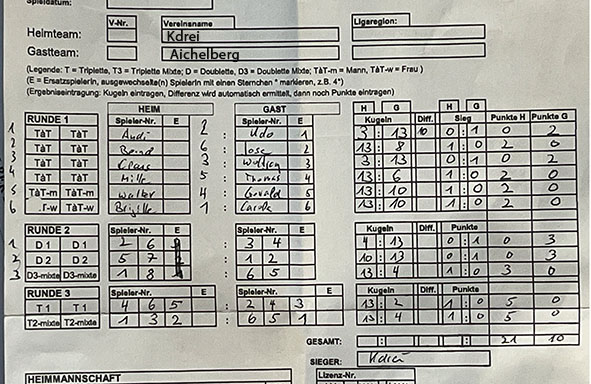 Spieldatum:
V-Nr. Vereinsname Ligaregion:
Heimteam: Kdrei
Gastteam: Aichelberg
(Legende: T = Triplette, T3 = Triplette Mixte; D = Doublette, D3 = Doublette Mixte; TàT-m = Mann, TàT-w = Frau )
(E = ErsatzspielerIn, ausgewechselte(n) SpielerIn mit einen Sternchen * markieren, z.B. 4*)
(Ergebniseintragung: Kugeln eintragen, Differenz wird automatisch ermittelt, dann noch Punkte eintragen)
HEIM GAST H G H G
RUNDE 1 Spieler-Nr. E Spieler-Nr. E Kugeln Diff. Sieg Punkte H Punkte G
1 TàT TàT Andi 2 : Udo 1 3 : 13 10 0 : 1 0 2
2 TàT TàT Bernd 6 : Jose 2 13 : 8 1 : 0 2 0
3 TàT TàT Claus 3 : Wolfgang 3 3 : 13 0 : 1 0 2
4 TàT TàT 5 : Thomas 4 13 : 6 1 : 0 2 0
5 TàT-m TàT-m Walter 4 : Gerold 5 13 : 10 1 : 0 2 0
6 T-w TàT-w Brigitte 1 : Carola 6 13 : 10 1 : 0 2 0
RUNDE 2 Spieler-Nr. E Spieler-Nr. E Kugeln Diff. Punkte
1 D 1 D 1 2 6 : 3 4 4 : 13 0 : 1 0 3
2 D 2 D 2 5 7 : 1 2 10 : 13 0 : 1 0 3
3 D3-mixte D3-mixte 1 8 : 6 5 13 : 4 1 : 0 3 0
RUNDE 3 Spieler-Nr. E Spieler-Nr. E Kugeln Diff. Punkte
T 1 T 1 4 6 5 : 2 4 3 13 : 2 1 : 0 5 0
T2-mixte T2-mixte 1 3 2 : 6 5 1 13 : 4 1 : 0 5 0
GESAMT: : : 21 10
SIEGER: Kdrei
HEIMMANNSCHAFT Lizenz-Nr.